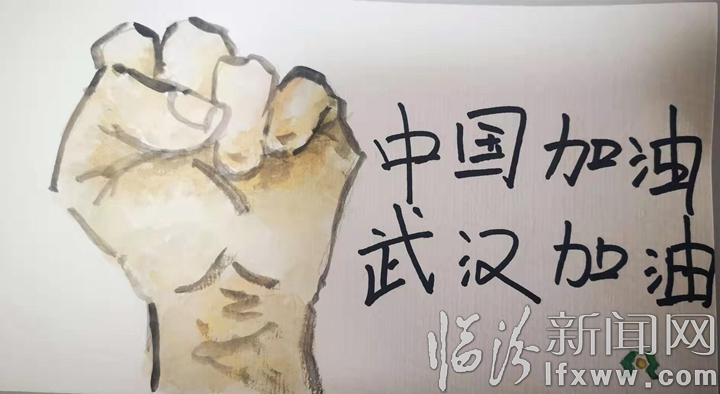 中国加油
武汉加油
临汾新闻网
lfxww.com